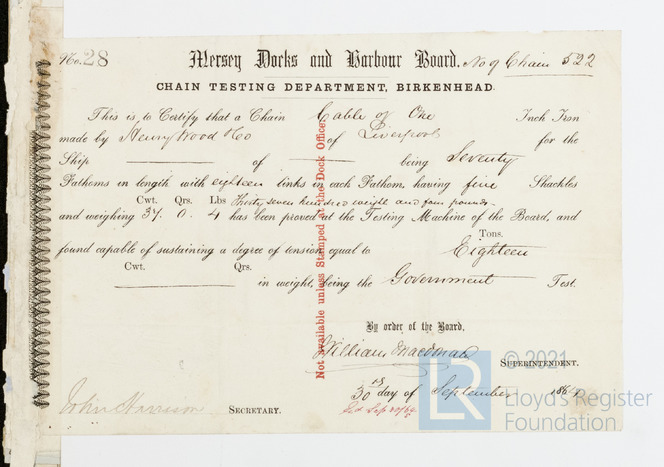 No. 28
Mersey Docks and Harbour Board. No of Chain 522
CHAIN TESTING DEPARTMENT, BIRKENHEAD.
This is to Certify that a Chain Cable of One Inch Iron
made by Henry Wood & Co of Liverpool for the
Ship of being Seventy
Fathoms in length with eighteen links in each Fathom, having five Shackles
Cwt. Qrs. Lbs Thirty seven hundred weight and four pounds.
and weighing 37. 0. 4 has been proved at the Testing Machine of the Board, and
Tons.
found capable of sustaining a degree of tension equal to Eighteen
Cwt. Qrs.
in weight, being the Government Test.
Not available unless Stamped at the Dock Office.
By order of the Board,
William
SUPERINTENDENT.
30 day of September 186
John Harrison SECRETARY.
© 2021
LR
Lloyd's Register
Foundation.